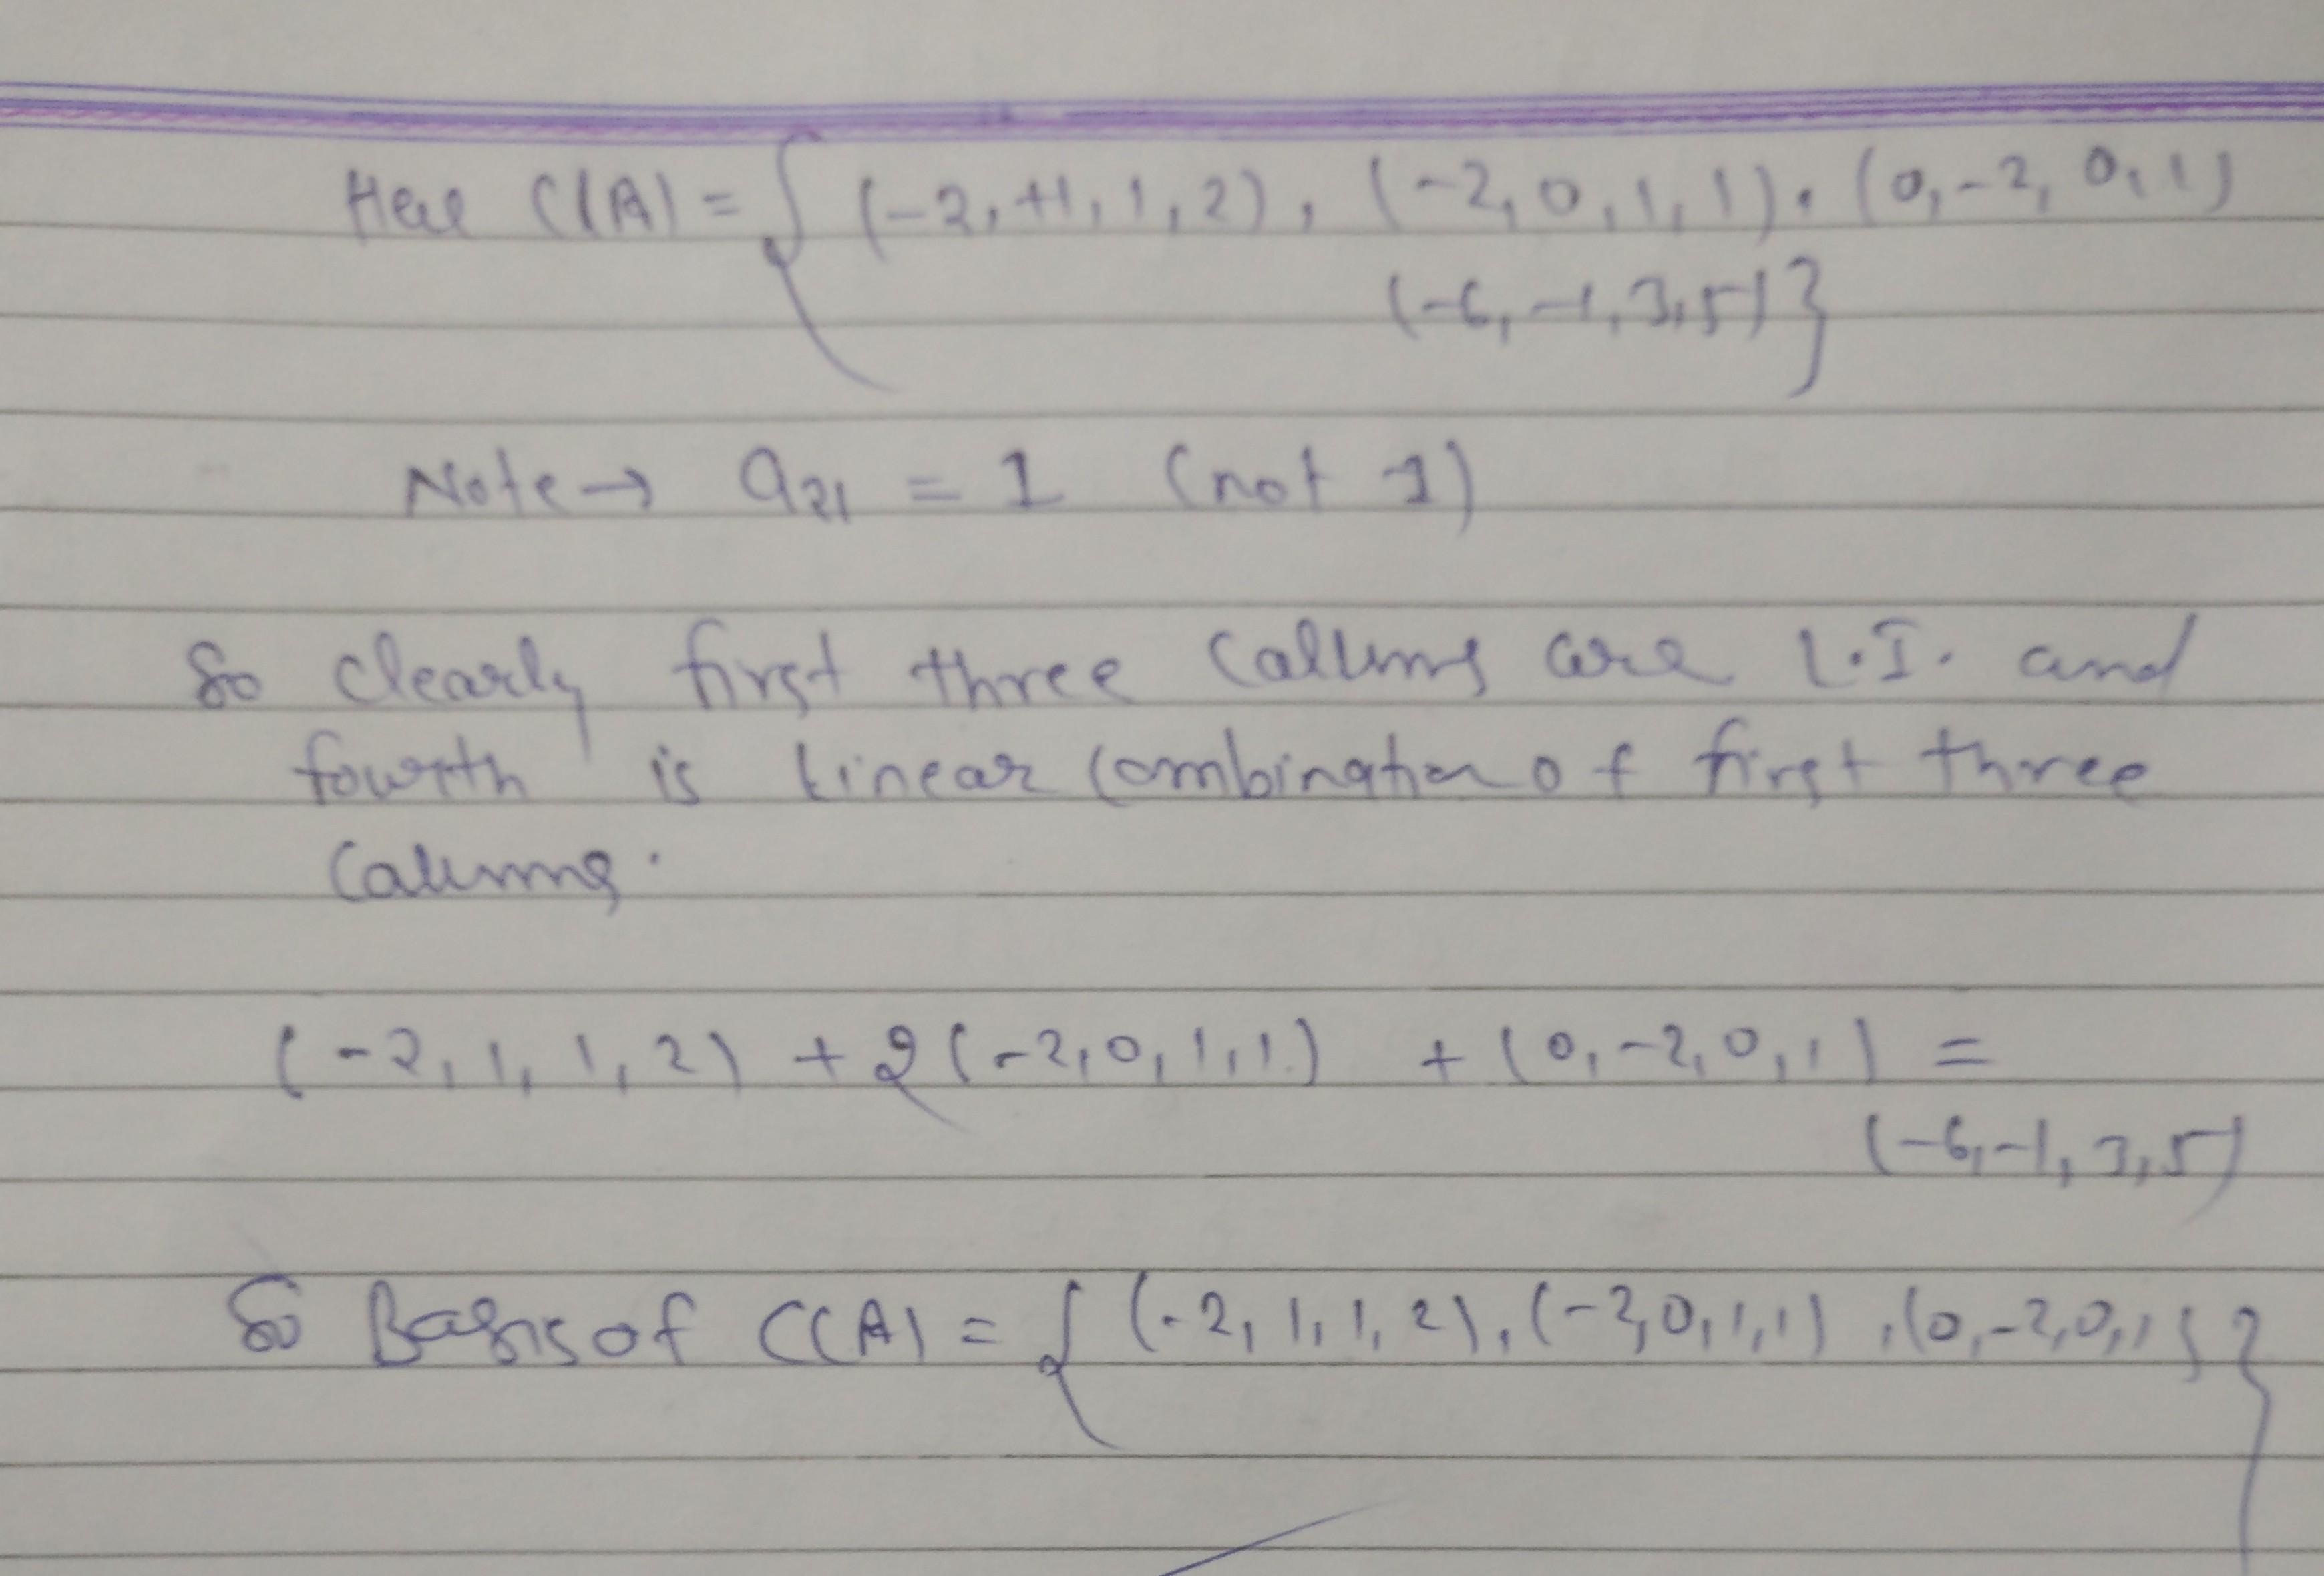 Here C(A) = { (-2, +1, 1, 2), (-2, 0, 1, 1), (0, -2, 0, 1)
(-6, -1, 3, 5) }
Note → a21 = 1 (not 1)
So clearly first three Callums are L.I. and
fourth is linear combination of first three
Calumns.
(-2, 1, 1, 2) + 2(-2, 0, 1, 1) + (0, -2, 0, 1) =
(-6, -1, 3, 5)
So Basis of C(A) = { (-2, 1, 1, 2), (-2, 0, 1, 1), (0, -2, 0, 1) }